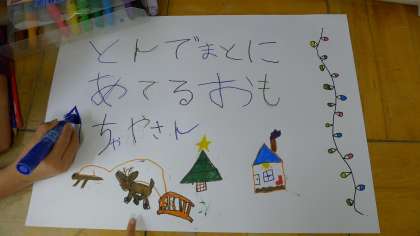 とんでまとに
あてるおも
ちゃやさん